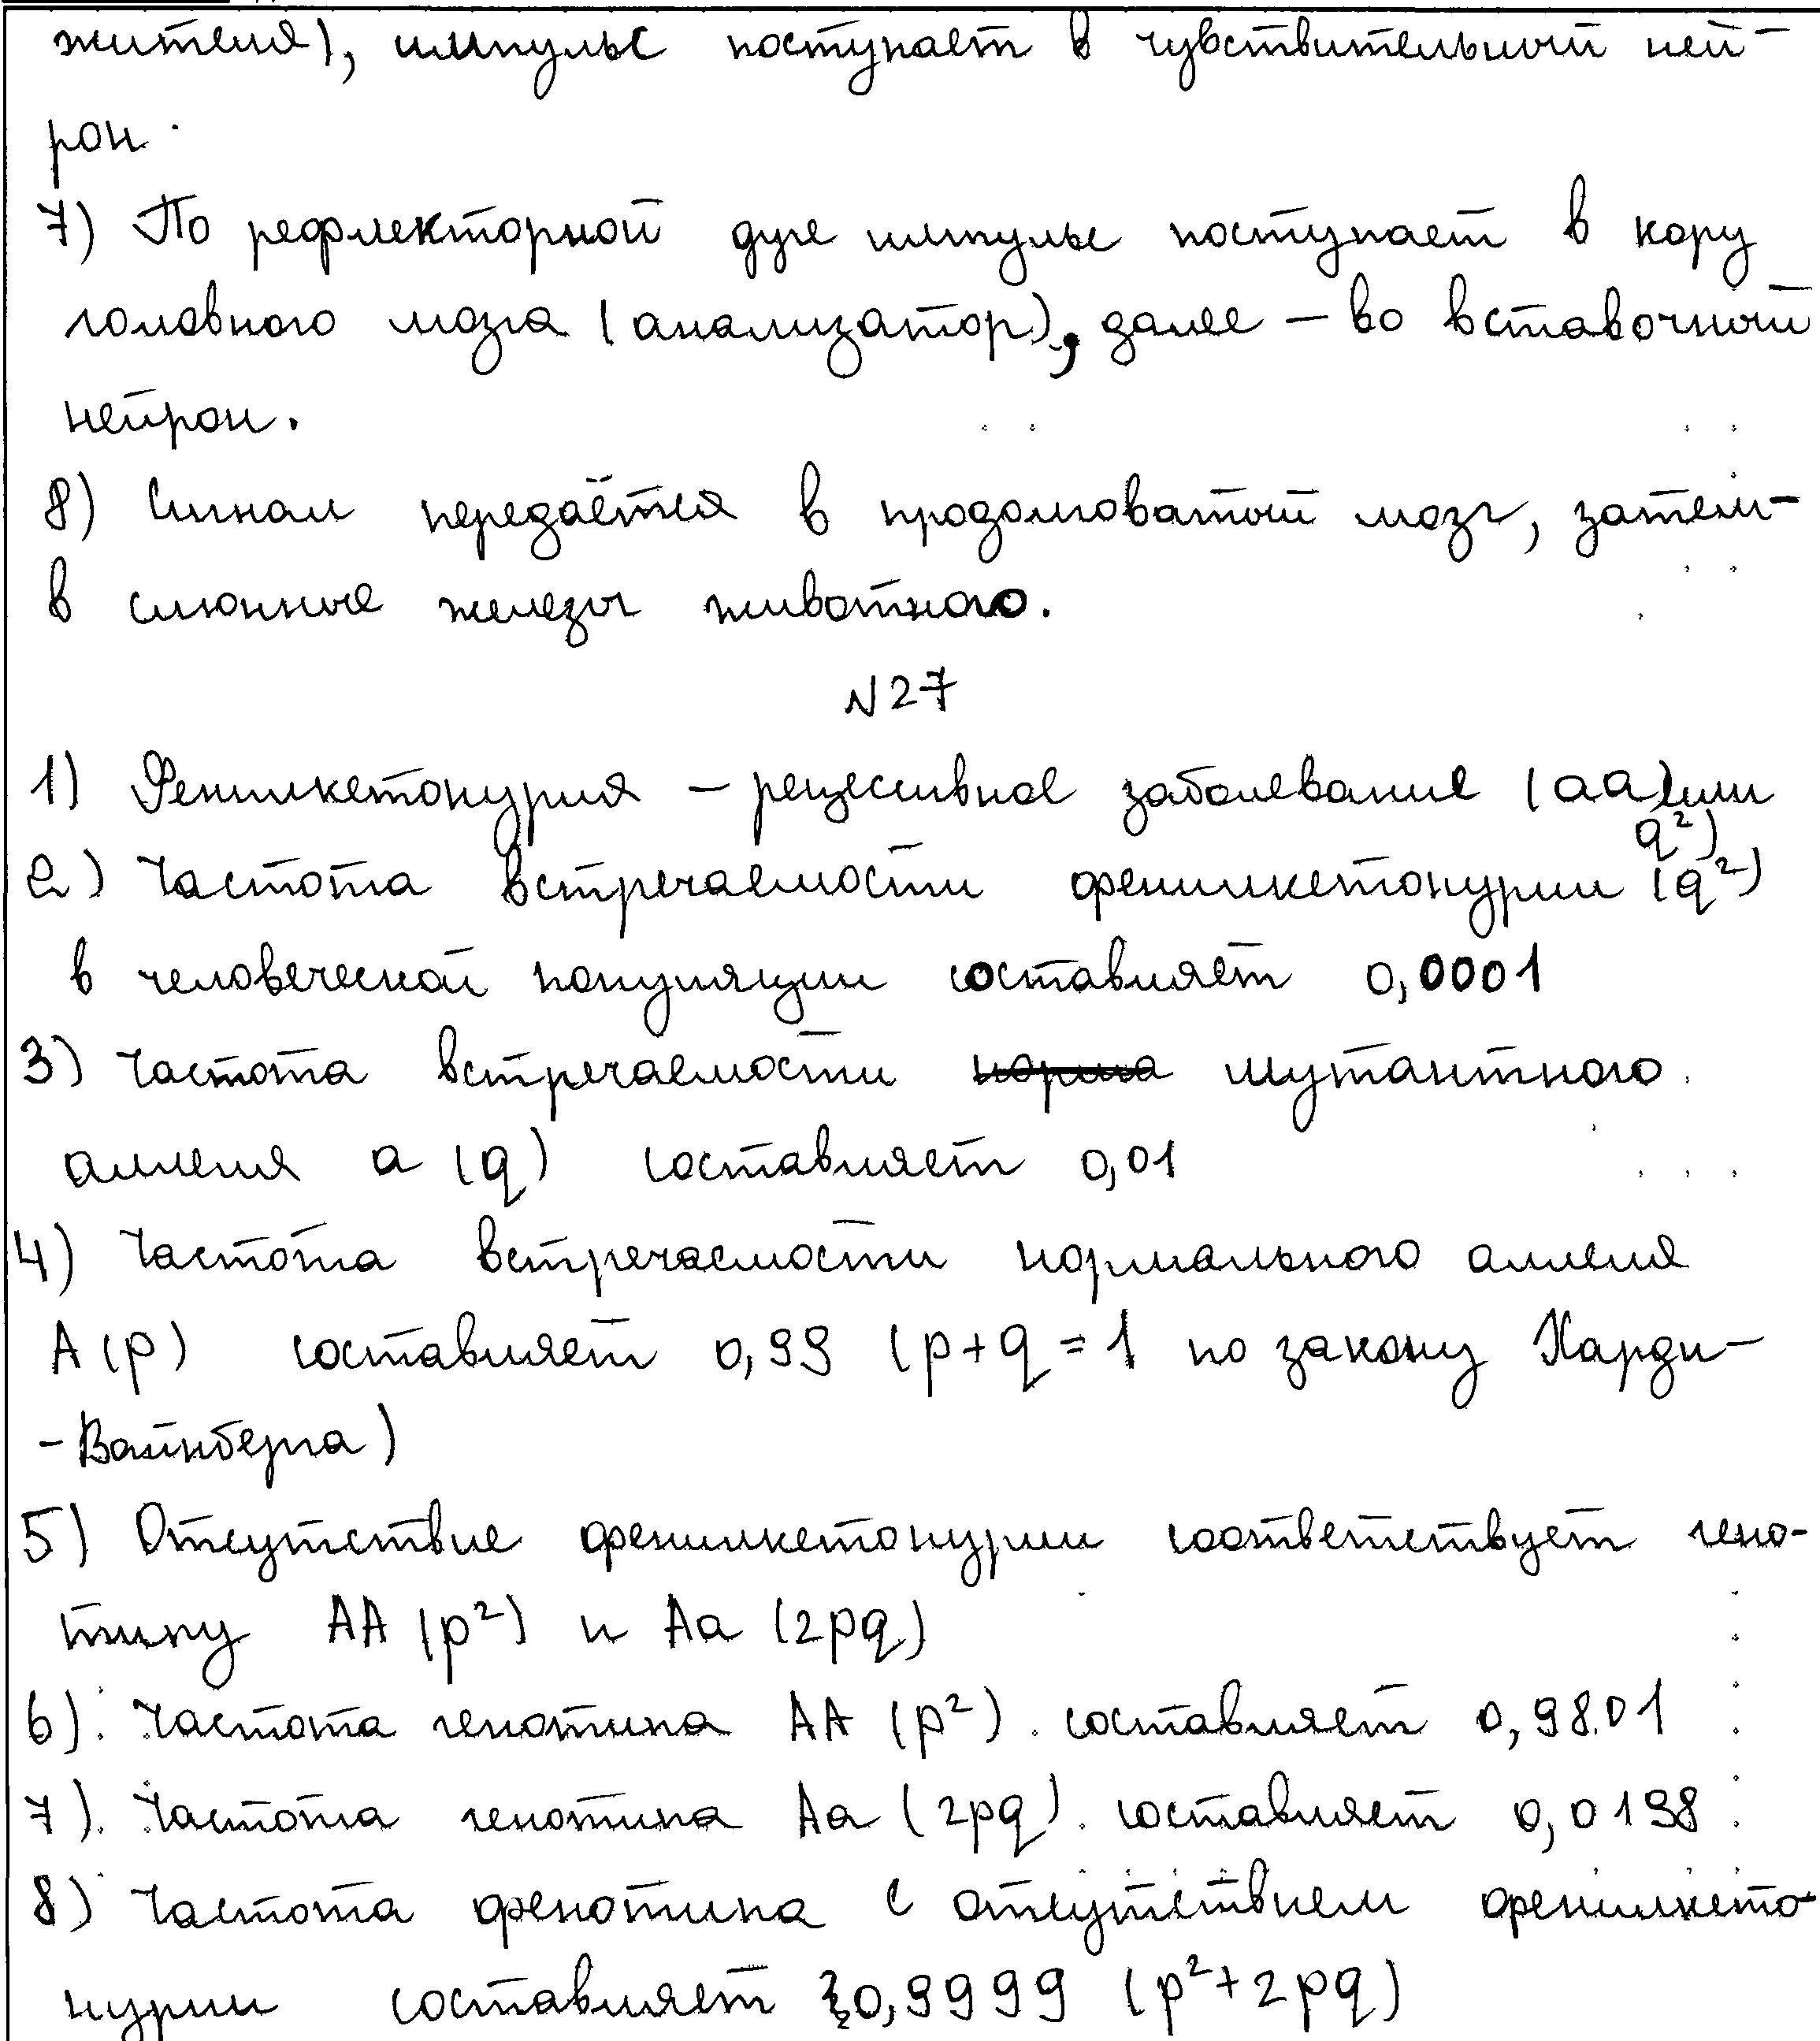 жителя), импульс поступает в чувствительный ней-
рон.
7) По рефлекторной дуге импульс поступает в кору
головного мозга (анализатор), далее – во вставочный
нейрон.
8) Сигнал передаётся в продолговатый мозг, затем –
в слюнные железы животного.
№27
1) Фенилкетонурия – рецессивное заболевание (аа) или
q²)
2) Частота встречаемости фенилкетонурии (q²)
в человеческой популяции составляет 0,0001
3) Частота встречаемости норма мутантного
аллеля а (q) составляет 0,01
4) Частота встречаемости нормального аллеля
А (p) составляет 0,99 (p+q=1 по закону Харди-
-Вайнберга)
5) Отсутствие фенилкетонурии соответствует гено-
типу АА (p²) и Аа (2pq)
6) Частота генотипа АА (p²) составляет 0,9801
7) Частота генотипа Аа (2pq) составляет 0,0198
8) Частота фенотипа с отсутствием фенилкето-
нурии составляет 0,9999 (p²+2pq)